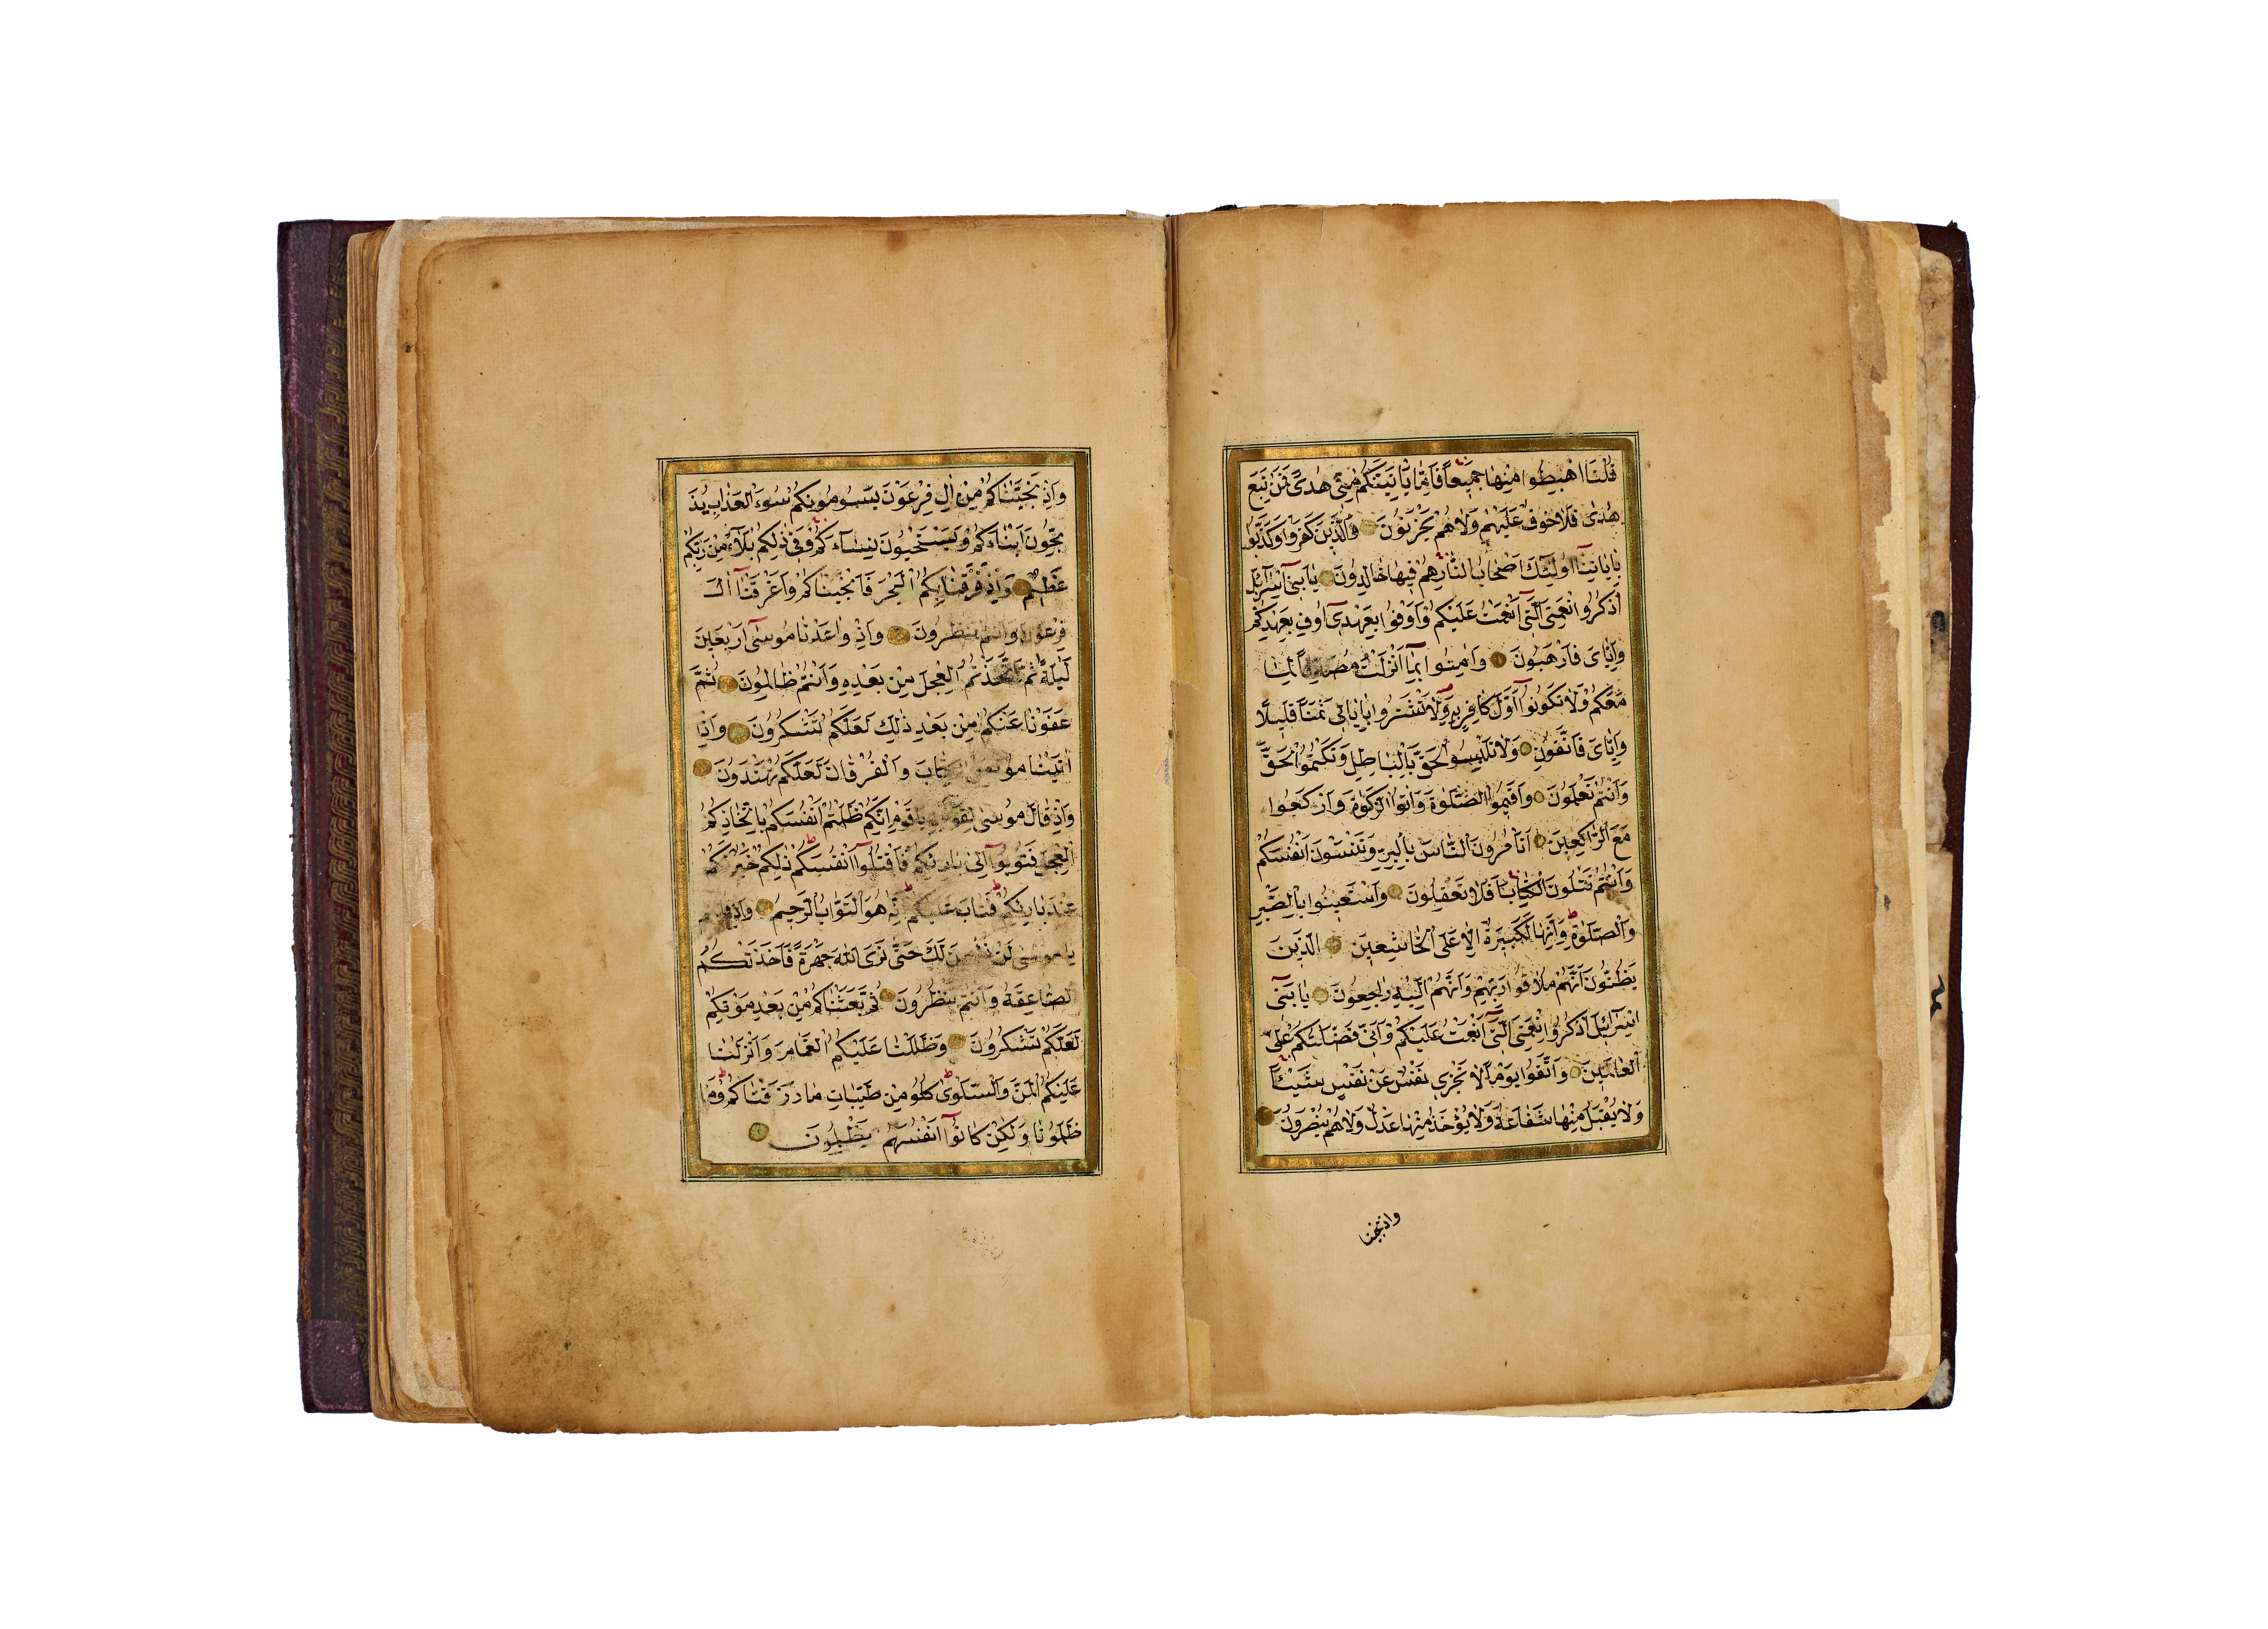 قُلْنَا اهْبِطُوا مِنْهَا جَمِيعًا فَاِمَّا يَأْتِيَنَّكُمْ مِنِّي هُدًى فَمَنْ تَبِعَ
هُدٰىَ فَلَا خَوْفٌ عَلَيْهِمْ وَلَا هُمْ يَحْزَنُونَ وَالَّذِينَ كَفَرُوا وَكَذَّبُوا
بِاٰيَاتِنَآ اُولٰٓئِكَ اَصْحَابُ النَّارِ هُمْ فِيهَا خَالِدُونَ يَا بَنِيٓ اِسْرَآئِلَ
اذْكُرُوا نِعْمَتِيَ الَّتِيٓ اَنْعَمْتُ عَلَيْكُمْ وَاَوْفُوا بِعَهْدِيٓ اُوفِ بِعَهْدِكُمْ
وَاِيَّايَ فَارْهَبُونِ وَاٰمِنُوا بِمَآ اَنْزَلْتُ مُصَدِّقًا لِمَا
مَعَكُمْ وَلَا تَكُونُوٓا اَوَّلَ كَافِرٍ بِهِ وَلَا تَشْتَرُوا بِاٰيَاتِي ثَمَنًا قَلِيلًا
وَاِيَّايَ فَاتَّقُونِ وَلَا تَلْبِسُوا الْحَقَّ بِالْبَاطِلِ وَتَكْتُمُوا الْحَقَّ
وَاَنْتُمْ تَعْلَمُونَ وَاَقِيمُوا الصَّلٰوةَ وَاٰتُوا الزَّكٰوةَ وَارْكَعُوا
مَعَ الرَّاكِعِينَ اَتَأْمُرُونَ النَّاسَ بِالْبِرِّ وَتَنْسَوْنَ اَنْفُسَكُمْ
وَاَنْتُمْ تَتْلُونَ الْكِتَابَ اَفَلَا تَعْقِلُونَ وَاسْتَعِينُوا بِالصَّبْرِ
وَالصَّلٰوةِ وَاِنَّهَا لَكَبِيرَةٌ اِلَّا عَلَى الْخَاشِعِينَ الَّذِينَ
يَظُنُّونَ اَنَّهُمْ مُلَاقُوا رَبِّهِمْ وَاَنَّهُمْ اِلَيْهِ رَاجِعُونَ يَا بَنِيٓ
اِسْرَآئِلَ اذْكُرُوا نِعْمَتِيَ الَّتِيٓ اَنْعَمْتُ عَلَيْكُمْ وَاَنِّي فَضَّلْتُكُمْ عَلَى
الْعَالَمِينَ وَاتَّقُوا يَوْمًا لَا تَجْزِي نَفْسٌ عَنْ نَفْسٍ شَيْئًا
وَلَا يُقْبَلُ مِنْهَا شَفَاعَةٌ وَلَا يُؤْخَذُ مِنْهَا عَدْلٌ وَلَا هُمْ يُنْصَرُونَ
واذ نجينا
وَاِذْ نَجَّيْنَاكُمْ مِنْ اٰلِ فِرْعَوْنَ يَسُومُونَكُمْ سُوٓءَ الْعَذَابِ يُذَ
بِّحُونَ اَبْنَآءَكُمْ وَيَسْتَحْيُونَ نِسَآءَكُمْ وَفِي ذٰلِكُمْ بَلَآءٌ مِنْ رَبِّكُمْ
عَظِيمٌ وَاِذْ فَرَقْنَا بِكُمُ الْبَحْرَ فَاَنْجَيْنَاكُمْ وَاَغْرَقْنَآ اٰلَ
فِرْعَوْنَ وَاَنْتُمْ تَنْظُرُونَ وَاِذْ وَاعَدْنَا مُوسٰىٓ اَرْبَعِينَ
لَيْلَةً ثُمَّ اتَّخَذْتُمُ الْعِجْلَ مِنْ بَعْدِهِ وَاَنْتُمْ ظَالِمُونَ ثُمَّ
عَفَوْنَا عَنْكُمْ مِنْ بَعْدِ ذٰلِكَ لَعَلَّكُمْ تَشْكُرُونَ وَاِذْ
اٰتَيْنَا مُوسَى الْكِتَابَ وَالْفُرْقَانَ لَعَلَّكُمْ تَهْتَدُونَ
وَاِذْ قَالَ مُوسٰى لِقَوْمِهِ يَا قَوْمِ اِنَّكُمْ ظَلَمْتُمْ اَنْفُسَكُمْ بِاتِّخَاذِكُمُ
الْعِجْلَ فَتُوبُوٓا اِلٰى بَارِئِكُمْ فَاقْتُلُوٓا اَنْفُسَكُمْ ذٰلِكُمْ خَيْرٌ لَكُمْ
عِنْدَ بَارِئِكُمْ فَتَابَ عَلَيْكُمْ اِنَّهُ هُوَ التَّوَّابُ الرَّحِيمُ وَاِذْ قُلْتُمْ
يَا مُوسٰى لَنْ نُؤْمِنَ لَكَ حَتّٰى نَرَى اللّٰهَ جَهْرَةً فَاَخَذَتْكُمُ
الصَّاعِقَةُ وَاَنْتُمْ تَنْظُرُونَ ثُمَّ بَعَثْنَاكُمْ مِنْ بَعْدِ مَوْتِكُمْ
لَعَلَّكُمْ تَشْكُرُونَ وَظَلَّلْنَا عَلَيْكُمُ الْغَمَامَ وَاَنْزَلْنَا
عَلَيْكُمُ الْمَنَّ وَالسَّلْوٰى كُلُوا مِنْ طَيِّبَاتِ مَا رَزَقْنَاكُمْ وَمَا
ظَلَمُونَا وَلٰكِنْ كَانُوٓا اَنْفُسَهُمْ يَظْلِمُونَ